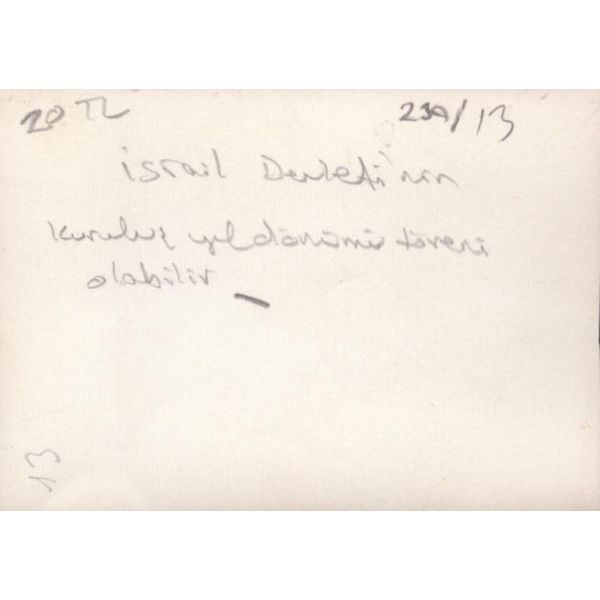 20 TL
239/13
İsrail Devleti'nin
Kuruluş yıldönümü töreni
olabilir
13